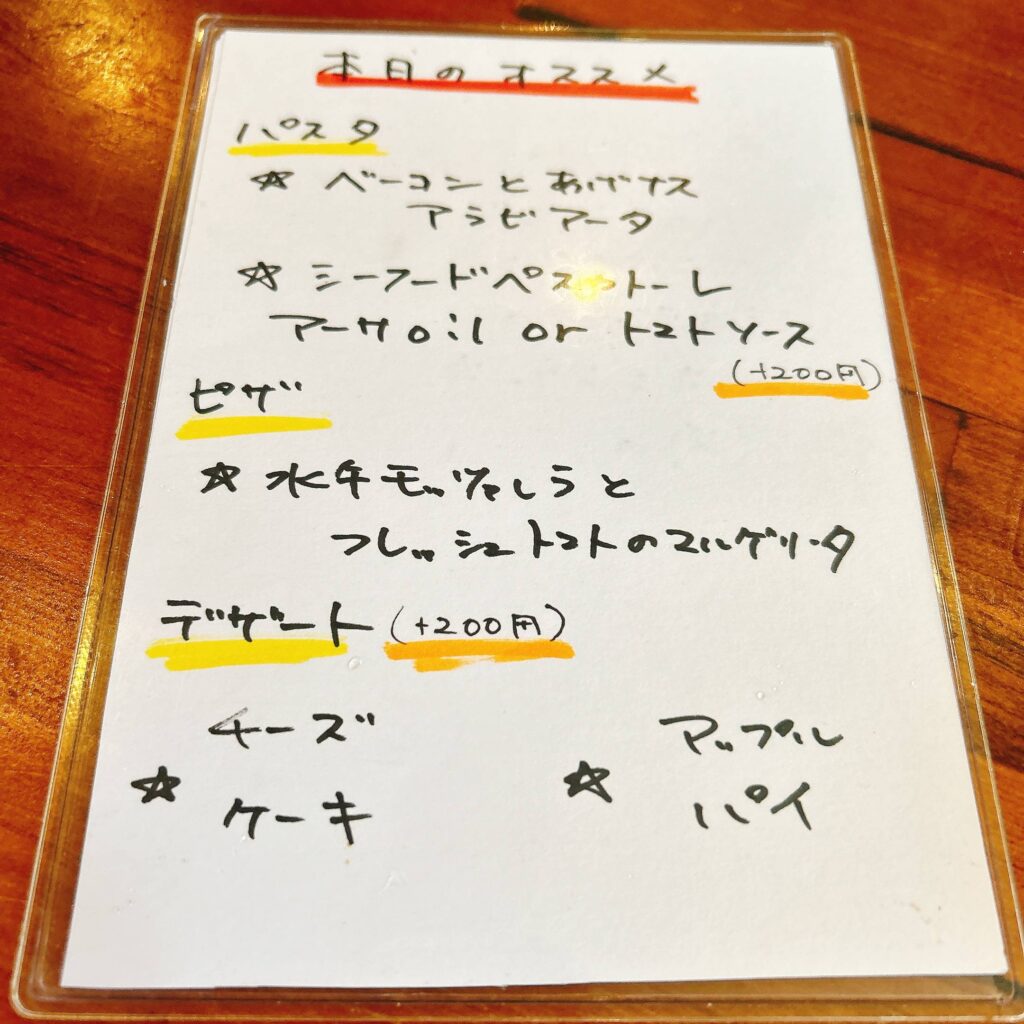 本日のオススメ
パスタ
☆ ベーコンとあげナス
アラビアータ
☆ シーフードペスカトーレ
アーリオoil or トマトソース
(+200円)
ピザ
☆ 水牛モッツァレラと
フレッシュトマトのマルゲリータ
デザート (+200円)
チーズ
☆ ケーキ
アップル
☆ パイ